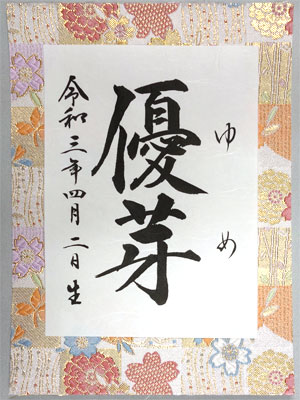 ゆめ
優芽
令和三年四月二日生